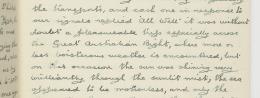 the Transports, and each one in response to
our signals replied "All Well" it was without
doubt a pleasureable trip especially across
the Great Australian Bight, where more or
less boisterous weather is encountered, but
on this occasion the sun was shining very
brilliantly through the sunlit mist, the sea
appeared to be motionless, and only the